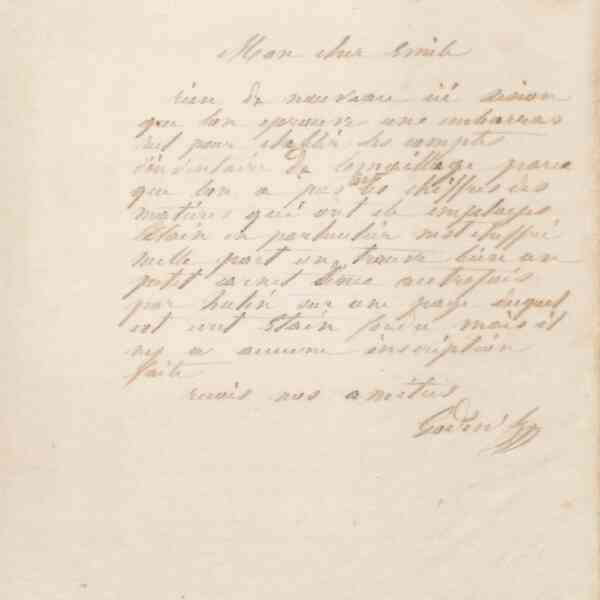 Mon cher Emile
rien de nouveau ici sinon
que lon eprouve une embarras
reel pour etablir les comptes
d'inventaire de lemaillage parce
que lon a pas les chiffres des
matieres qui ont ete employees
letain en particulier nest chiffré
nulle part on trouve bien un
petit carnet tenu autrefois
par hutin sur une page duquel
est ecrit Etain fondu mais il
ny a aucune inscription
faite
recois nos amities
Godin